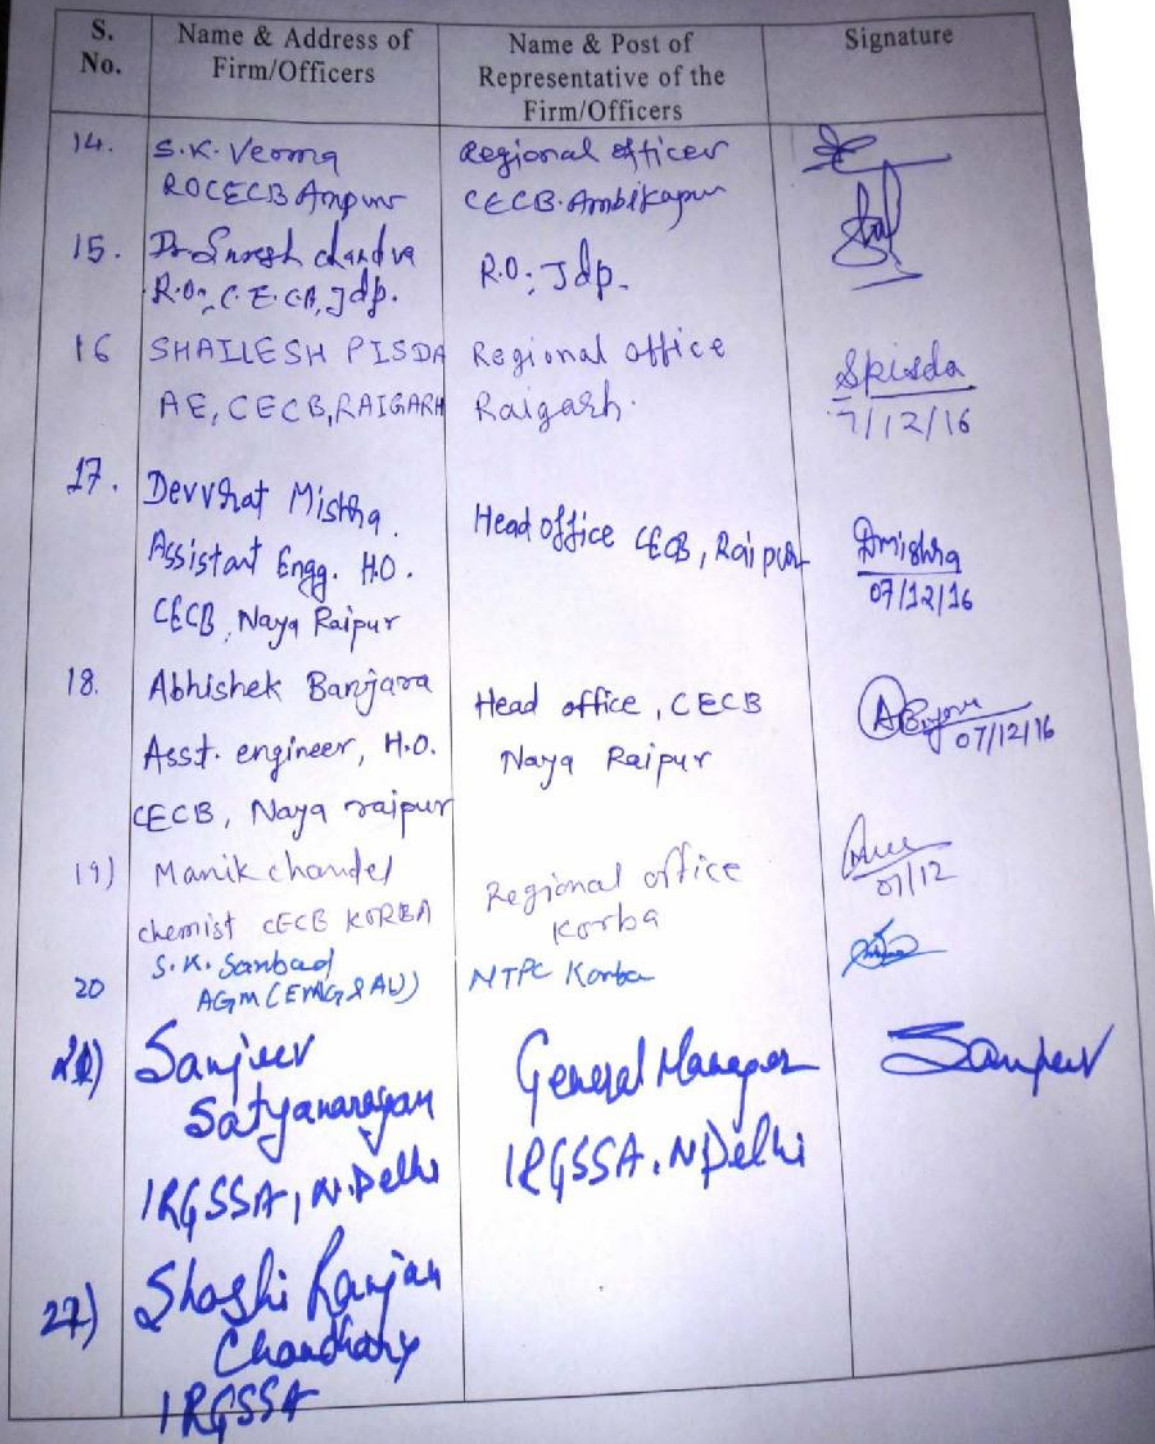 S. No.
Name & Address of Firm/Officers
Name & Post of Representative of the Firm/Officers
Signature
14.
S.K. Verma
ROCECB Ampur
Regional officer
CECB. Ambikapur
15.
Dr Suresh chandra
R.O., C.E.C.B, Jdp.
R.O., Jdp.
16
SHAILESH PISDA
AE, CECB, RAIGARH
Regional office
Raigarh.
Spisda
7/12/16
17.
Devvrat Mishra.
Assistant Engg. H.O.
CECB, Naya Raipur
Head office CECB, Raipur
Dmishra
07/12/16
18.
Abhishek Banjara
Asst. engineer, H.O.
CECB, Naya raipur
Head office, CECB
Naya Raipur
07/12/16
19)
Manik chandel
chemist CECB KORBA
Regional office
Korba
07/12
20
S.K. Sanbad
AGM (EMG & AU)
NTPC Korba
21)
Sanjeev
Satyanarayan
IRGSSA, N.Delhi
General Manager
IRGSSA, N Delhi
Sanjeev
22)
Shashi Ranjan
Chaudhary
IRGSSA